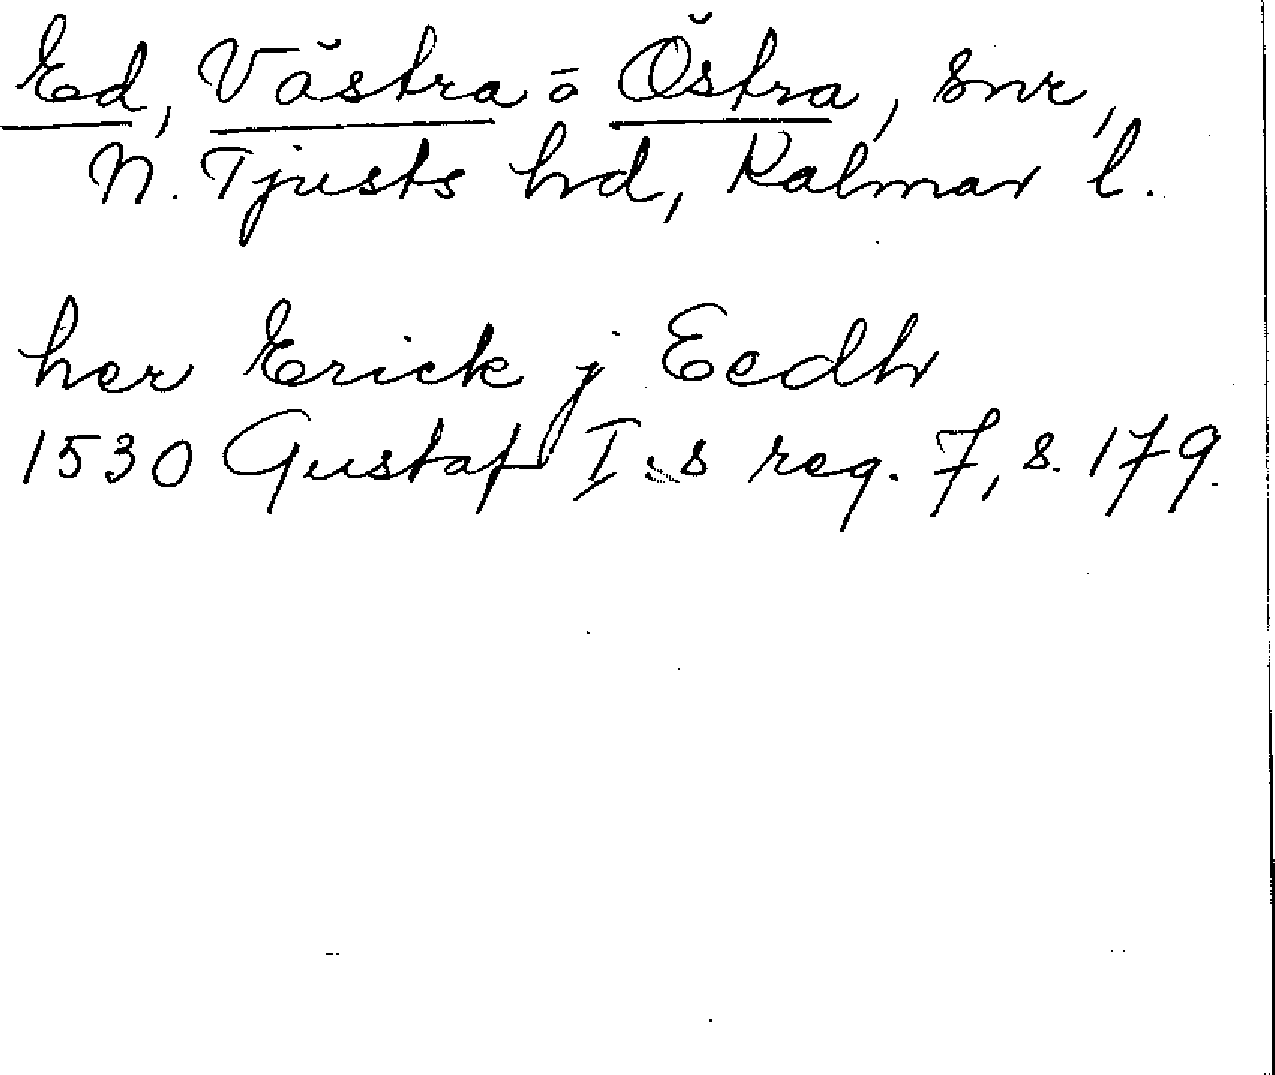 Ed, Västra o Östra, snr,
N. Tjusts hd, Kalmar l.
her Erick j Eedh
1530 Gustaf I:s reg. 7, s. 179.